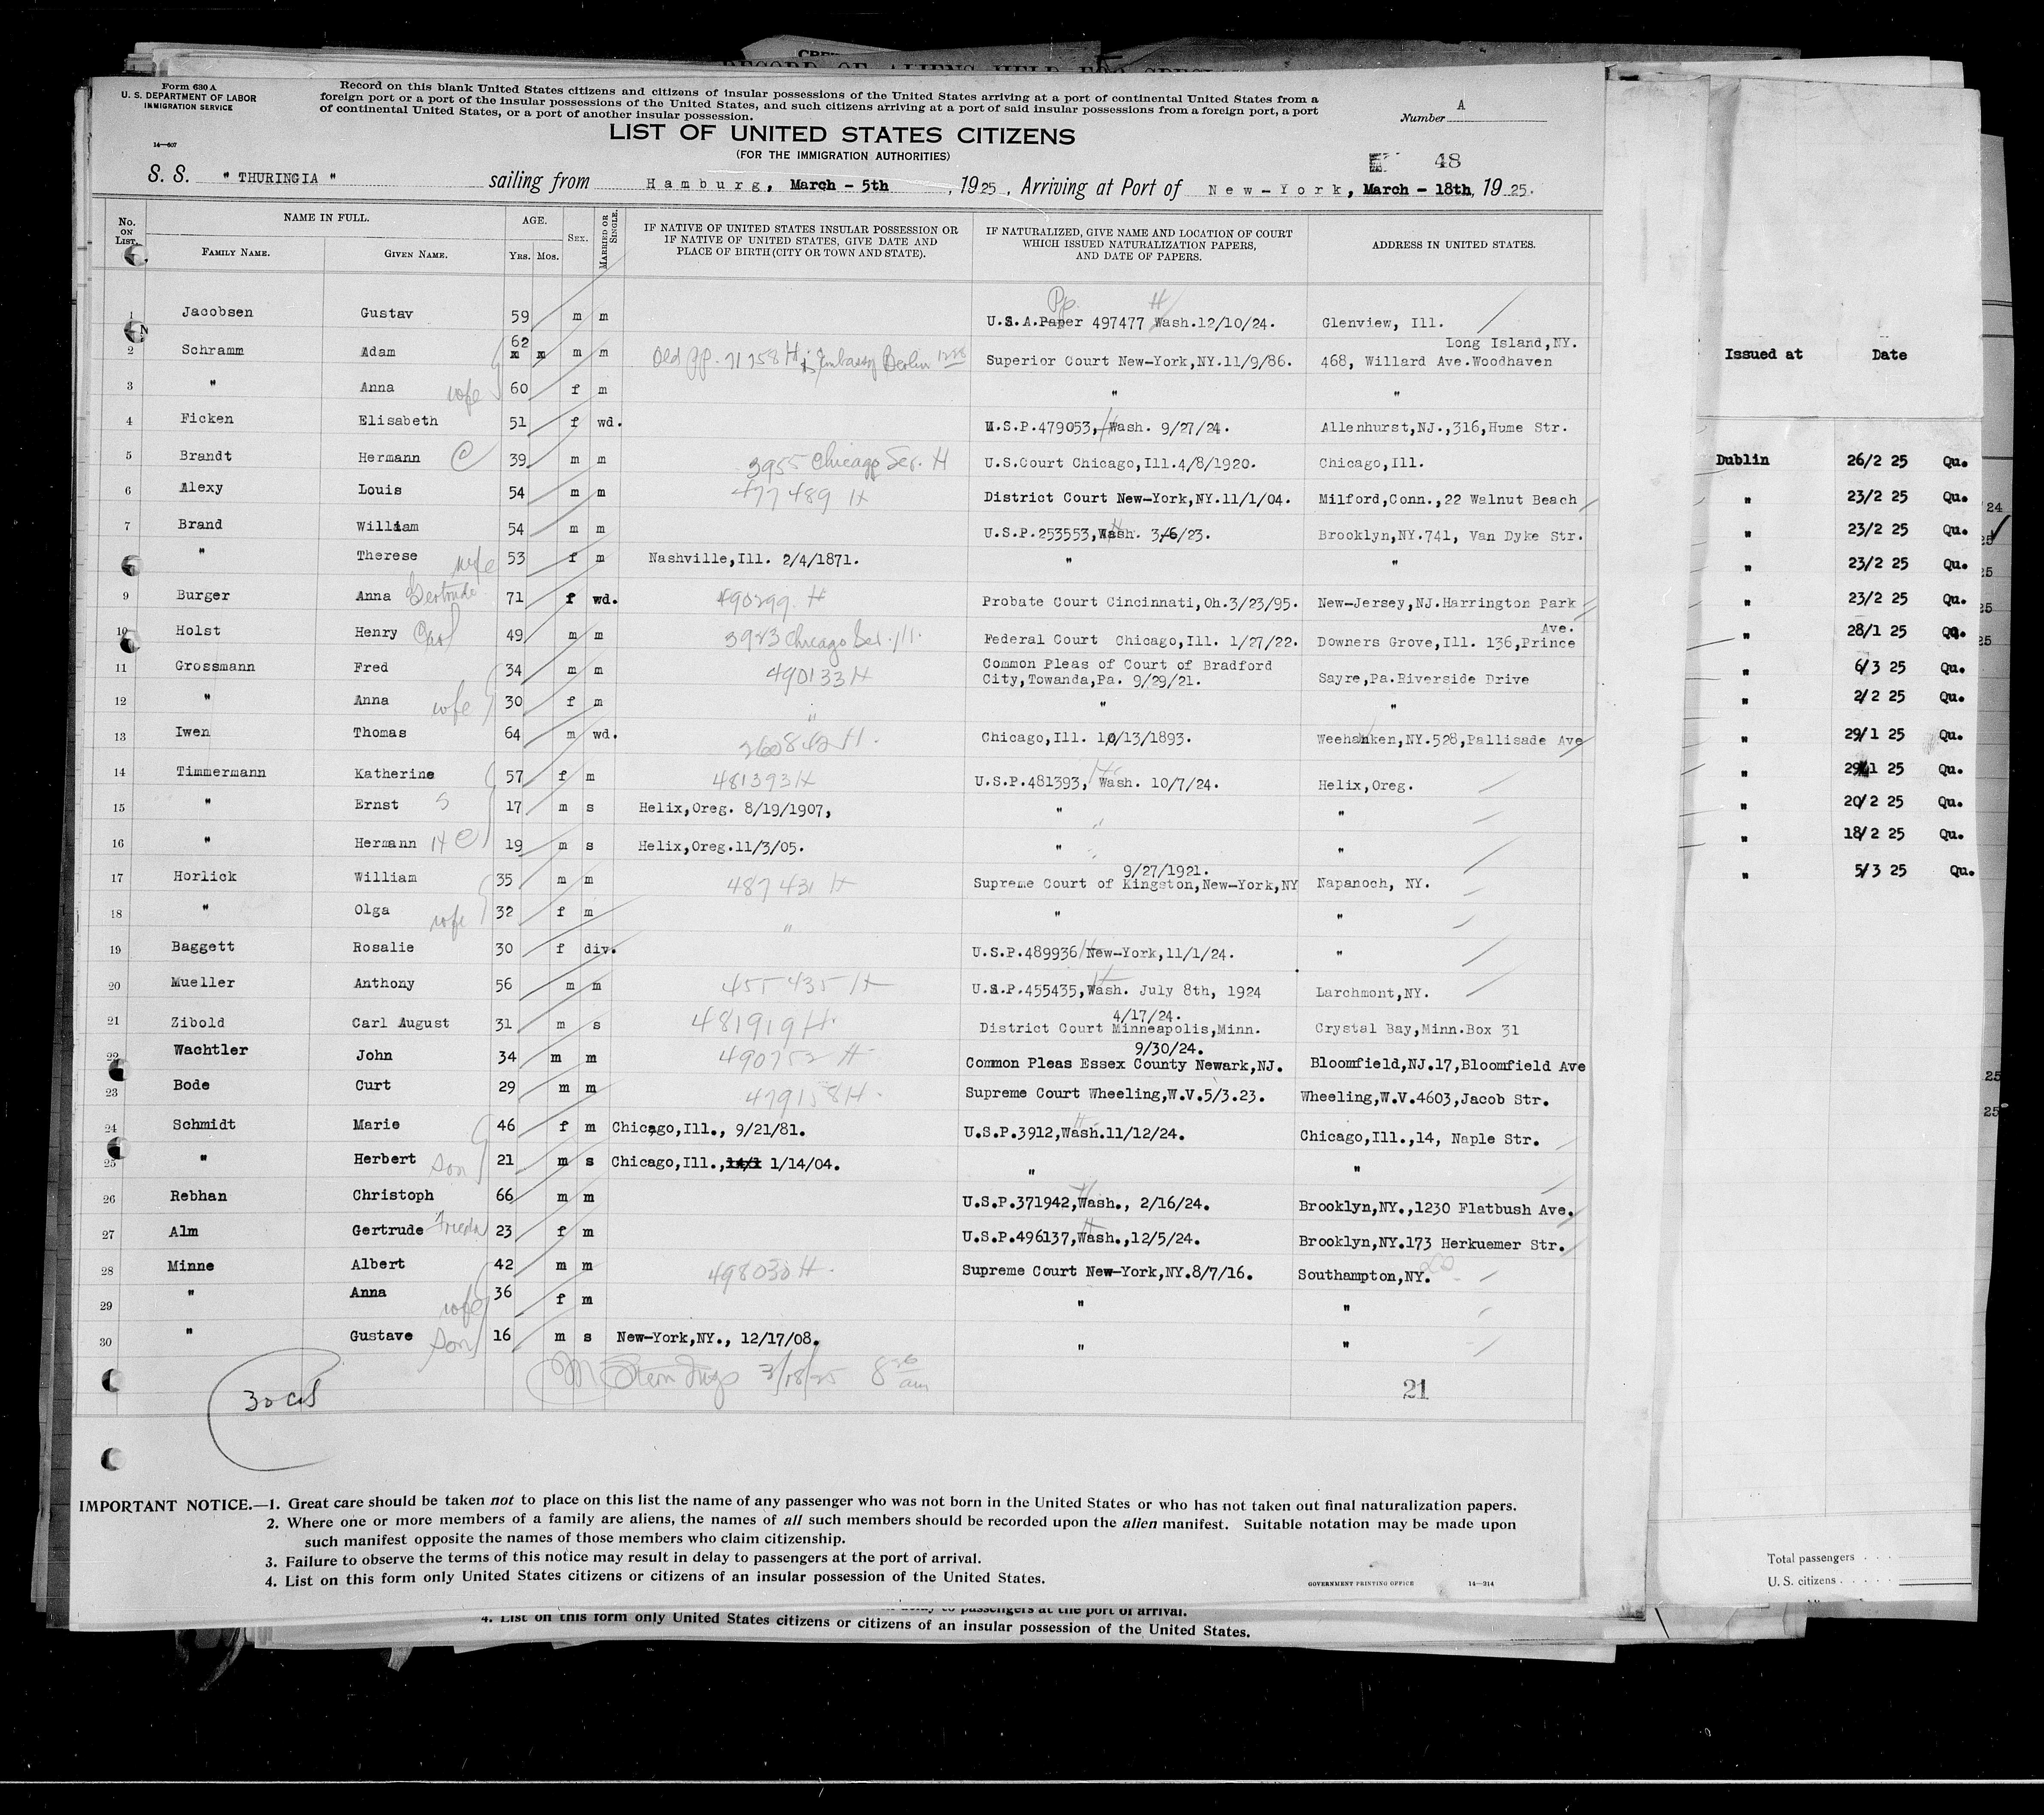 Form 630 A
U. S. DEPARTMENT OF LABOR
IMMIGRATION SERVICE
14—607
Record on this blank United States citizens and citizens of insular possessions of the United States arriving at a port of continental United States from a
foreign port or a port of the insular possessions of the United States, and such citizens arriving at a port of said insular possessions from a foreign port, a port
of continental United States, or a port of another insular possession.
A
Number
LIST OF UNITED STATES CITIZENS
(FOR THE IMMIGRATION AUTHORITIES)
48
S. S. " THURINGIA " sailing from Hamburg, March - 5th , 1925 , Arriving at Port of New-York, March - 18th, 1925.
No. ON LIST. NAME IN FULL. FAMILY NAME. GIVEN NAME. AGE. YRS. MOS. SEX. MARRIED OR SINGLE. IF NATIVE OF UNITED STATES INSULAR POSSESSION OR IF NATIVE OF UNITED STATES, GIVE DATE AND PLACE OF BIRTH (CITY OR TOWN AND STATE). IF NATURALIZED, GIVE NAME AND LOCATION OF COURT WHICH ISSUED NATURALIZATION PAPERS, AND DATE OF PAPERS. ADDRESS IN UNITED STATES.
1 Jacobsen Gustav 59 m m U.S.A.Paper Pp. 497477 H Wash.12/10/24. Glenview, Ill.
2 Schramm Adam 62 m m Old pp. 71758 H Embassy Berlin Superior Court New-York,NY.11/9/86. 468, Willard Ave.Woodhaven Long Island,NY.
3 " Anna wife 60 f m " "
4 Ficken Elisabeth 51 f wd. U.S.P.479053, Wash. 9/27/24. Allenhurst,NJ.,316,Hume Str.
5 Brandt Hermann C 39 m m 3955 Chicago Ser. H U.S.Court Chicago,Ill.4/8/1920. Chicago,Ill.
6 Alexy Louis 54 m m 477489 H District Court New-York,NY.11/1/04. Milford,Conn.,22 Walnut Beach
7 Brand William 54 m m U.S.P.253553,Wash. 3/6/23. Brooklyn,NY.741, Van Dyke Str.
" Therese wife 53 f m Nashville,Ill. 2/4/1871. " "
9 Burger Anna Gertrude 71 f wd. 490299 H Probate Court Cincinnati,Oh.3/23/95. New-Jersey,NJ.Harrington Park
10 Holst Henry Carl 49 m m 3923 Chicago Ser. Federal Court Chicago,Ill. 1/27/22. Downers Grove,Ill. 136,Prince Ave.
11 Grossmann Fred 34 m m 490133 H Common Pleas of Court of Bradford City,Towanda,Pa. 9/29/21. Sayre,Pa.Riverside Drive
12 " Anna wife 30 f m " " "
13 Iwen Thomas 64 m wd. 260842 H. Chicago,Ill. 10/13/1893. Weehawken,NY.528,Pallisade Ave
14 Timmermann Katherine 57 f m 481393 H U.S.P.481393, Wash. 10/7/24. Helix,Oreg.
15 " Ernst S 17 m s Helix,Oreg. 8/19/1907, " "
16 " Hermann H C 19 m s Helix,Oreg.11/3/05. " "
17 Horlick William 35 m m 487431 H Supreme Court of Kingston,New-York,NY 9/27/1921. Napanoch, NY.
18 " Olga wife 32 f m " " "
19 Baggett Rosalie 30 f div. U.S.P.489936 New-York,11/1/24. "
20 Mueller Anthony 56 m m 455435 H U.S.P.455435,Wash. July 8th, 1924 Larchmont,NY.
21 Zibold Carl August 31 m s 481919 H. District Court Minneapolis,Minn. 4/17/24. Crystal Bay,Minn.Box 31
22 Wachtler John 34 m m 490752 H Common Pleas Essex County Newark,NJ. 9/30/24. Bloomfield,NJ.17,Bloomfield Ave
23 Bode Curt 29 m m 479158 H. Supreme Court Wheeling,W.V.5/3.23. Wheeling,W.V.4603,Jacob Str.
24 Schmidt Marie 46 f m Chicago,Ill., 9/21/81. U.S.P.3912,Wash.11/12/24. Chicago,Ill.,14, Naple Str.
25 " Herbert son 21 m s Chicago,Ill., 1/14/04. " "
26 Rebhan Christoph 66 m m U.S.P.371942,Wash., 2/16/24. Brooklyn,NY.,1230 Flatbush Ave.
27 Alm Gertrude Frieda 23 f m U.S.P.496137,Wash.,12/5/24. Brooklyn,NY.173 Herkuemer Str.
28 Minne Albert 42 m m 498030 H. Supreme Court New-York,NY.8/7/16. Southampton,NY.
29 " Anna wife 36 f m " "
30 " Gustave son 16 m s New-York,NY., 12/17/08. " "
3/18/25 8 am
21
IMPORTANT NOTICE.—1. Great care should be taken not to place on this list the name of any passenger who was not born in the United States or who has not taken out final naturalization papers.
2. Where one or more members of a family are aliens, the names of all such members should be recorded upon the alien manifest. Suitable notation may be made upon
such manifest opposite the names of those members who claim citizenship.
3. Failure to observe the terms of this notice may result in delay to passengers at the port of arrival.
4. List on this form only United States citizens or citizens of an insular possession of the United States.
GOVERNMENT PRINTING OFFICE 14—214
4. List on this form only United States citizens or citizens of an insular possession of the United States.
Issued at Date
Dublin 26/2 25 Qu.
" 23/2 25 Qu.
" 23/2 25 Qu.
" 23/2 25 Qu.
" 23/2 25 Qu.
" 28/1 25 Qu.
" 6/3 25 Qu.
" 2/2 25 Qu.
" 29/1 25 Qu.
" 29/1 25 Qu.
" 20/2 25 Qu.
" 18/2 25 Qu.
" 5/3 25 Qu.
Total passengers . . .
U. S. citizens . . . . .